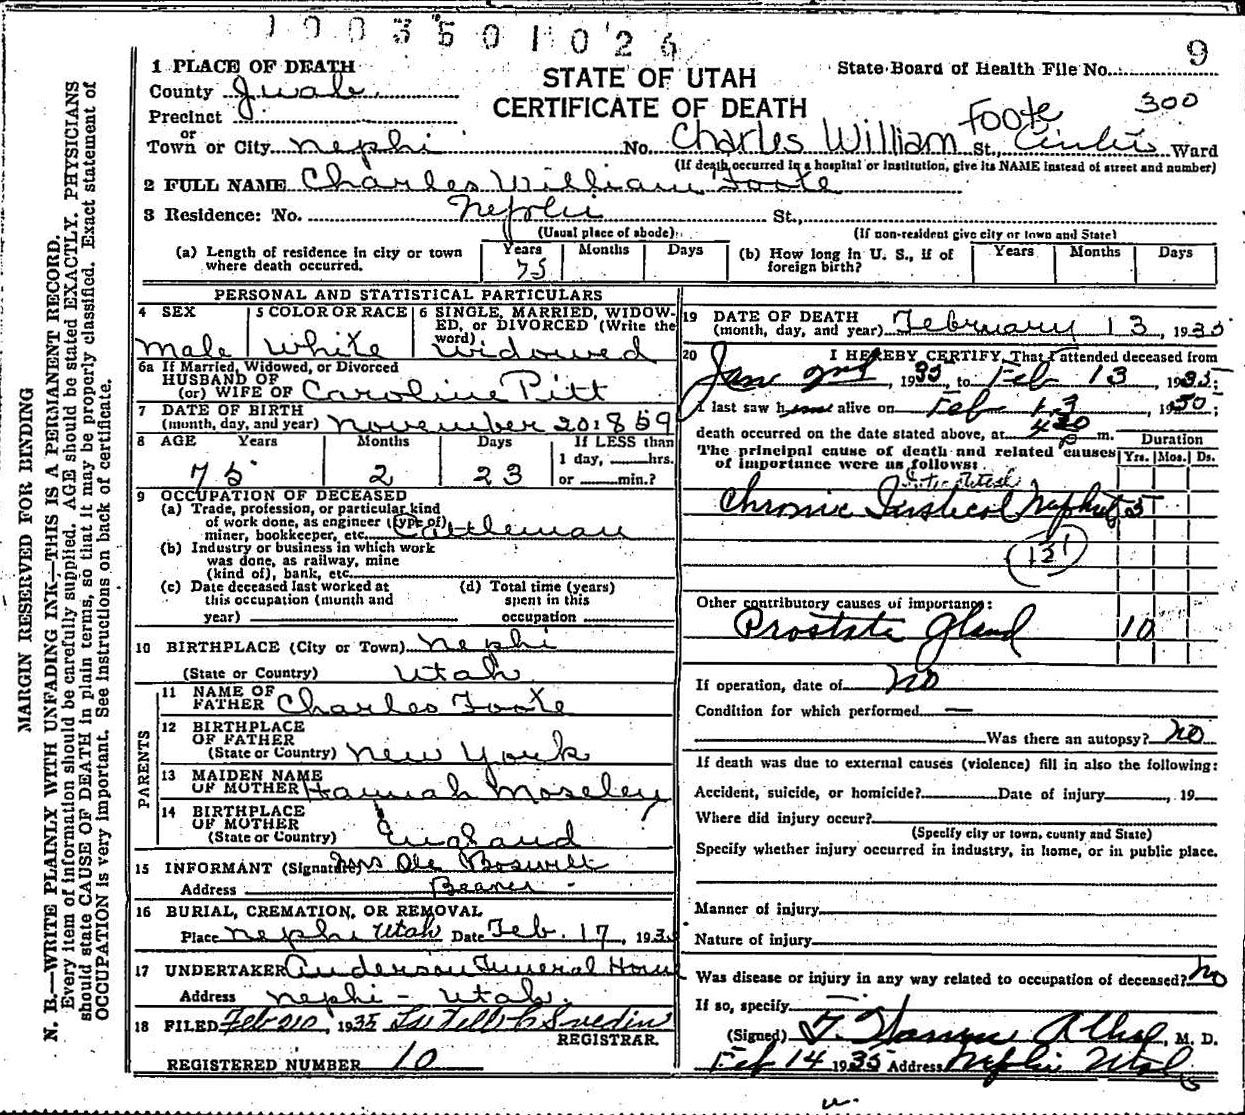 1 9 0 3 5 0 1 0 2 6
9
1 PLACE OF DEATH
STATE OF UTAH
CERTIFICATE OF DEATH
State Board of Health File No.
300
County Juab
Precinct
or
Town or City Nephi No. Charles William Foote St., Ward
(If death occurred in a hospital or institution, give its NAME instead of street and number)
2 FULL NAME Charles William Foote
3 Residence: No. Nephi St.,
(Usual place of abode) (If non-resident give city or town and State)
(a) Length of residence in city or town where death occurred. Years 75 Months Days
(b) How long in U. S., if of foreign birth? Years Months Days
PERSONAL AND STATISTICAL PARTICULARS
4 SEX Male
5 COLOR OR RACE White
6 SINGLE, MARRIED, WIDOWED, or DIVORCED (Write the word) Widowed
6a If Married, Widowed, or Divorced
HUSBAND OF
(or) WIFE OF Caroline Pitt
7 DATE OF BIRTH
(month, day, and year) November 20 1859
8 AGE Years Months Days If LESS than
75 2 23 1 day, hrs.
or min.?
9 OCCUPATION OF DECEASED
(a) Trade, profession, or particular kind
of work done, as engineer (type of)
miner, bookkeeper, etc. Cattleman
(b) Industry or business in which work
was done, as railway, mine
(kind of), bank, etc.
(c) Date deceased last worked at
this occupation (month and
year)
(d) Total time (years)
spent in this
occupation
10 BIRTHPLACE (City or Town) Nephi
(State or Country) Utah
PARENTS
11 NAME OF
FATHER Charles Foote
12 BIRTHPLACE
OF FATHER
(State or Country) New York
13 MAIDEN NAME
OF MOTHER Hannah Moseley
14 BIRTHPLACE
OF MOTHER
(State or Country) England
15 INFORMANT (Signature) Mrs Ole Boswell
Address Beaver
16 BURIAL, CREMATION, OR REMOVAL
Place Nephi Utah Date Feb. 17, 193
17 UNDERTAKER Anderson Funeral Home
Address Nephi - Utah.
18 FILED Feb 20, 1935
REGISTRAR.
REGISTERED NUMBER 10
19 DATE OF DEATH
(month, day, and year) February 13, 1935
20 I HEREBY CERTIFY, That I attended deceased from
Jan 2nd, 1935, to Feb 13, 1935;
I last saw him alive on Feb 13, 19
death occurred on the date stated above, at 4 30 p m.
The principal cause of death and related causes
of importance were as follows:
Duration
Yrs. Mos. Ds.
Interstitial
Chronic Nephrit 5
131
Other contributory causes of importance:
Prostate Gland 10
If operation, date of No
Condition for which performed —
Was there an autopsy? No
If death was due to external causes (violence) fill in also the following:
Accident, suicide, or homicide? Date of injury, 19
Where did injury occur?
(Specify city or town, county and State)
Specify whether injury occurred in industry, in home, or in public place.
Manner of injury
Nature of injury
Was disease or injury in any way related to occupation of deceased? No
If so, specify
(Signed) M. D.
Feb 14 1935 Address Nephi Utah
MARGIN RESERVED FOR BINDING
N. B.—WRITE PLAINLY WITH UNFADING INK—THIS IS A PERMANENT RECORD.
Every item of information should be carefully supplied. AGE should be stated EXACTLY. PHYSICIANS
should state CAUSE OF DEATH in plain terms, so that it may be properly classified. Exact statement of
OCCUPATION is very important. See instructions on back of certificate.